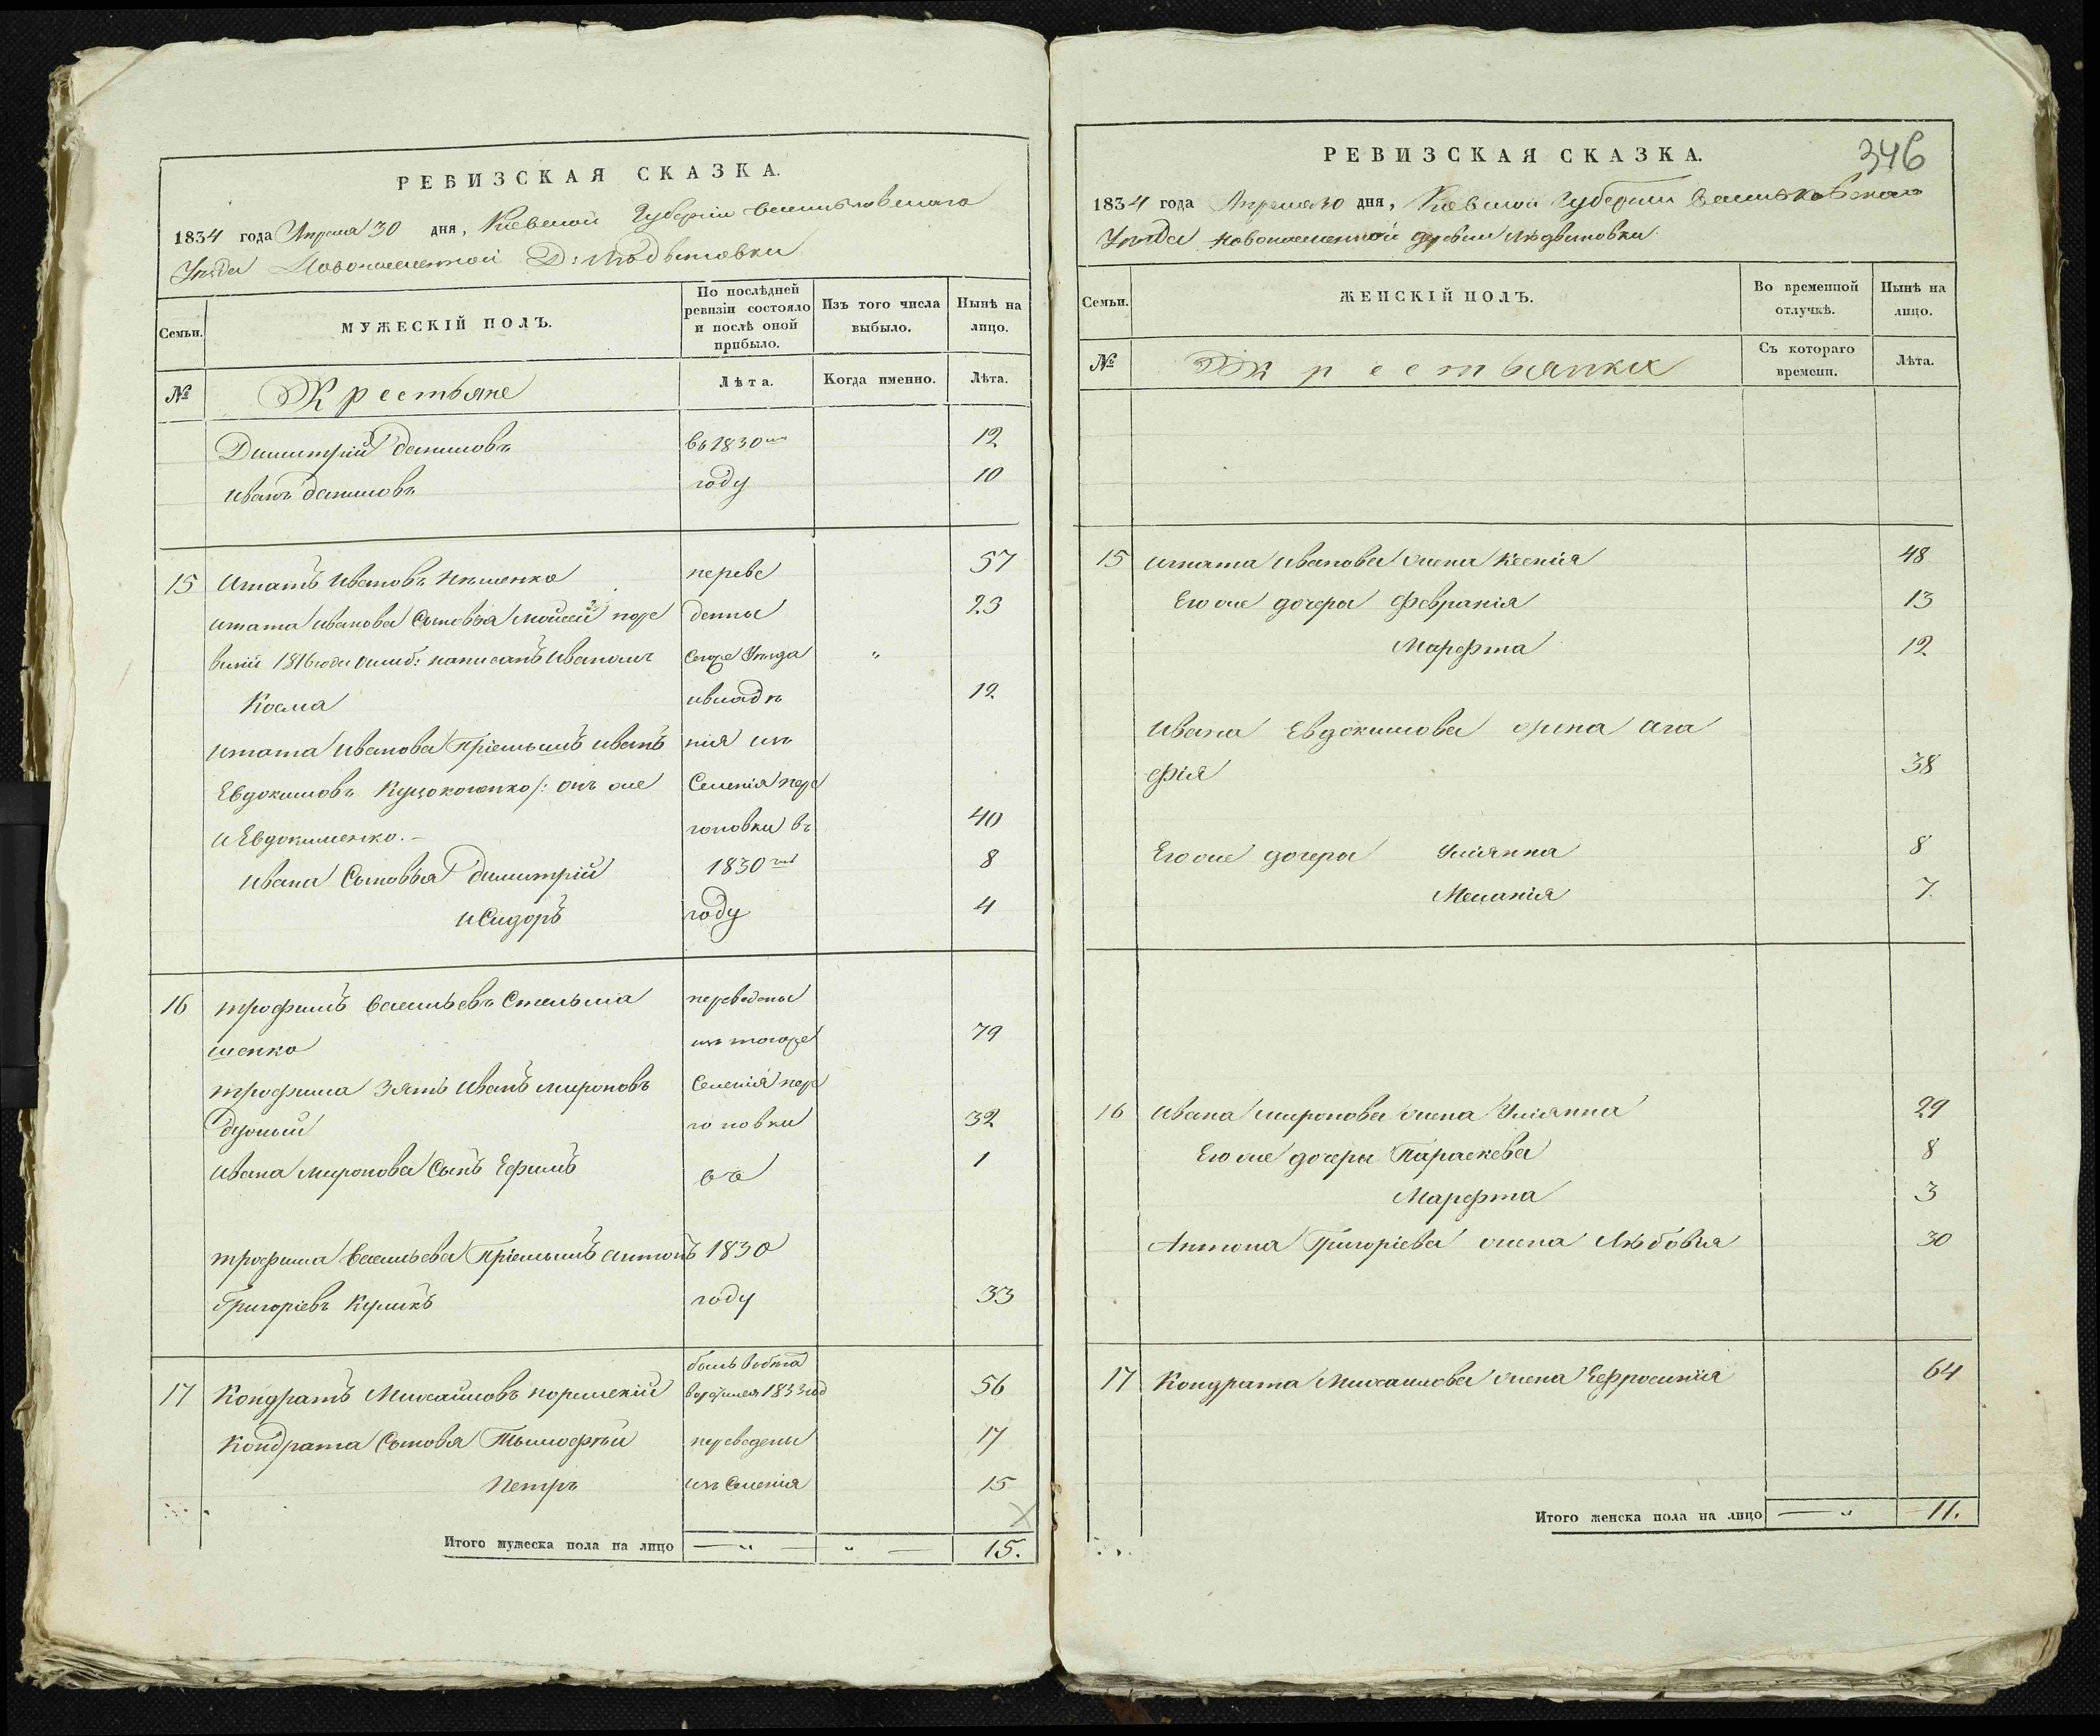 РЕВИЗСКАЯ СКАЗКА.
1834 года Апреля 30 дня, Киевской Губерніи Васильковскаго
Уезда Новонаселенной Д: Людвиновки
Семьи.
МУЖЕСКІЙ ПОЛЪ.
По послѣдней
ревизіи состояло
и послѣ оной
прибыло.
Изъ того числа
выбыло.
Нынѣ на
лицо.
№
Крестьяне
Лѣта.
Когда именно.
Лѣта.
Димитрій Даниловъ въ 1830 12
Иванъ Даниловъ году 10
15 Игнатъ Ивановъ переве 57
Игната Иванова Сыновья Мойсей по ре денны 23
визіи 1816 года ошиб: написанъ Иваномъ Уезда "
Косма 12
Игната Иванова Пріемышъ Иванъ нія изъ
Евдокимовъ онъ же Селенія
и Евдокименко. - гоновки въ 40
Ивана Сыновья Димитрій 1830 8
Исидоръ году 4
16 Трофимъ Васильевъ Стельма переведены
шенко изъ того же 79
Трофима зять Иванъ Мироновъ Селенія
гоновки 32
Ивана Миронова Сынъ Ефимъ въ 1
Трофима Васильева Пріемышъ Антонъ 1830
Григоріевъ Куликъ году 33
17 Кондратъ Михайловъ 1833 год 56
Кондрата Сыновья Тымофей переведены 17
Петръ изъ Селенія 15
Итого мужеска пола на лицо — " — " — 15.
РЕВИЗСКАЯ СКАЗКА.
346
1834 года Апреля 30 дня, Киевской Губерніи Васильковскаго
Уезда Новонаселенной деревни Людвиновки
Семьи.
ЖЕНСКІЙ ПОЛЪ.
Во временной
отлучкѣ.
Нынѣ на
лицо.
№
Крестьянки
Съ котораго
времени.
Лѣта.
15 Игната Иванова жена Ксенія 48
Его же дочеры Февранія 13
Марфта 12
Ивана Евдокимова жена Ага
фія 38
Его же дочеры Уліянна 8
Меланія 7.
16 Ивана Миронова жена Уліянна 29
Его же дочеры Параскева 8
Марфта 3
Антона Григоріева жена Любовья 30
17 Кондрата Михаилова жена Ефросинія 64
Итого женска пола на лицо — " 11.